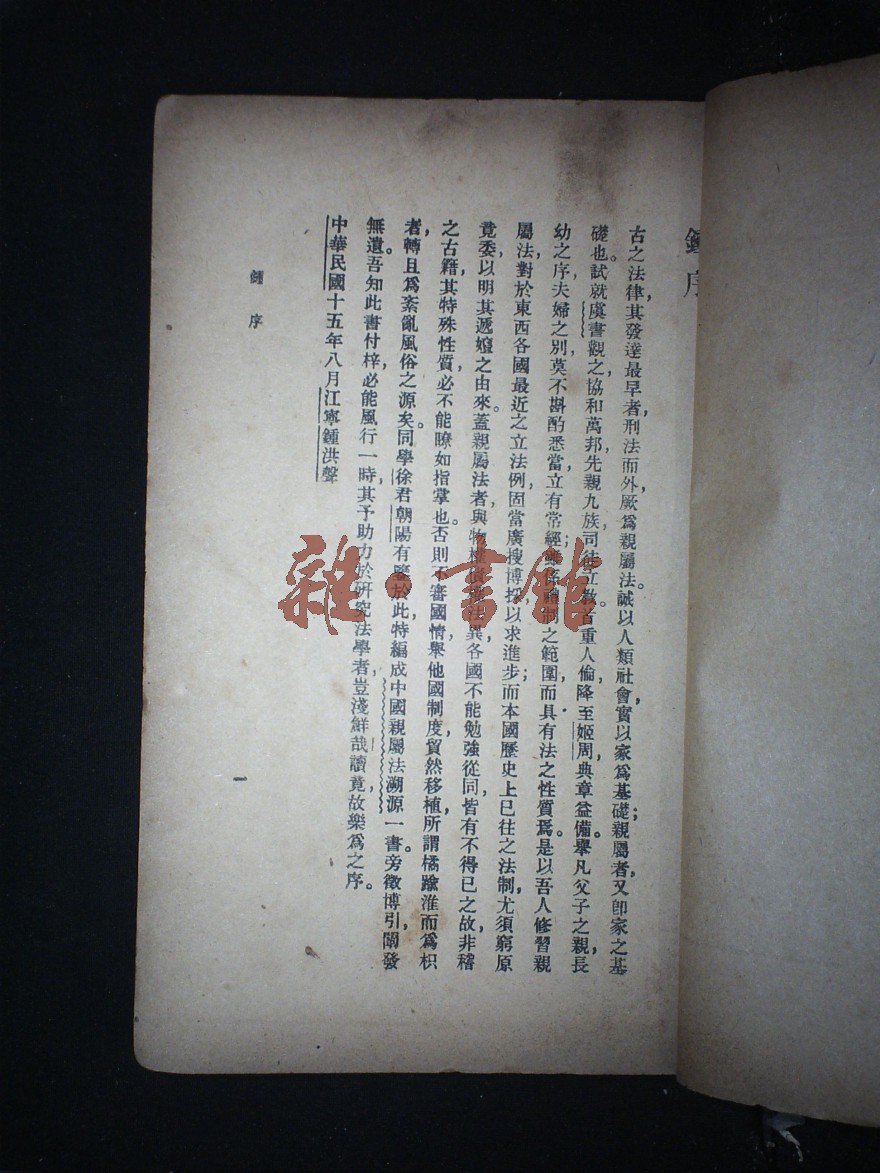 鍾序
古之法律，其發達最早者，刑法而外，厥爲親屬法。誠以人類社會，實以家爲基礎；親屬者，又卽家之基
礎也。試就虞書觀之，協和萬邦，先親九族，司徒立教，首重人倫，降至姬周，典章益備。舉凡父子之親，長
幼之序，夫婦之別，莫不斟酌悉當，立有常經；雖係禮制之範圍，而具有法之性質焉。是以吾人修習親
屬法，對於東西各國最近之立法例，固當廣搜博採，以求進步；而本國歷史上已往之法制，尤須窮原
竟委，以明其遞嬗之由來。蓋親屬法者，與物權債權法異，各國不能勉強從同，皆有不得已之故，非稽
之古籍，其特殊性質，必不能瞭如指掌也。否則不審國情，舉他國制度，貿然移植，所謂橘踰淮而爲枳
者，轉且爲紊亂風俗之源矣。同學徐君朝陽有鑒於此，特編成中國親屬法溯源一書。旁徵博引，闡發
無遺，吾知此書付梓，必能風行一時，其予助力於研究法學者，豈淺鮮哉，讀竟，故樂爲之序。
中華民國十五年八月江寧鍾洪聲
鍾序
一
雜·書館